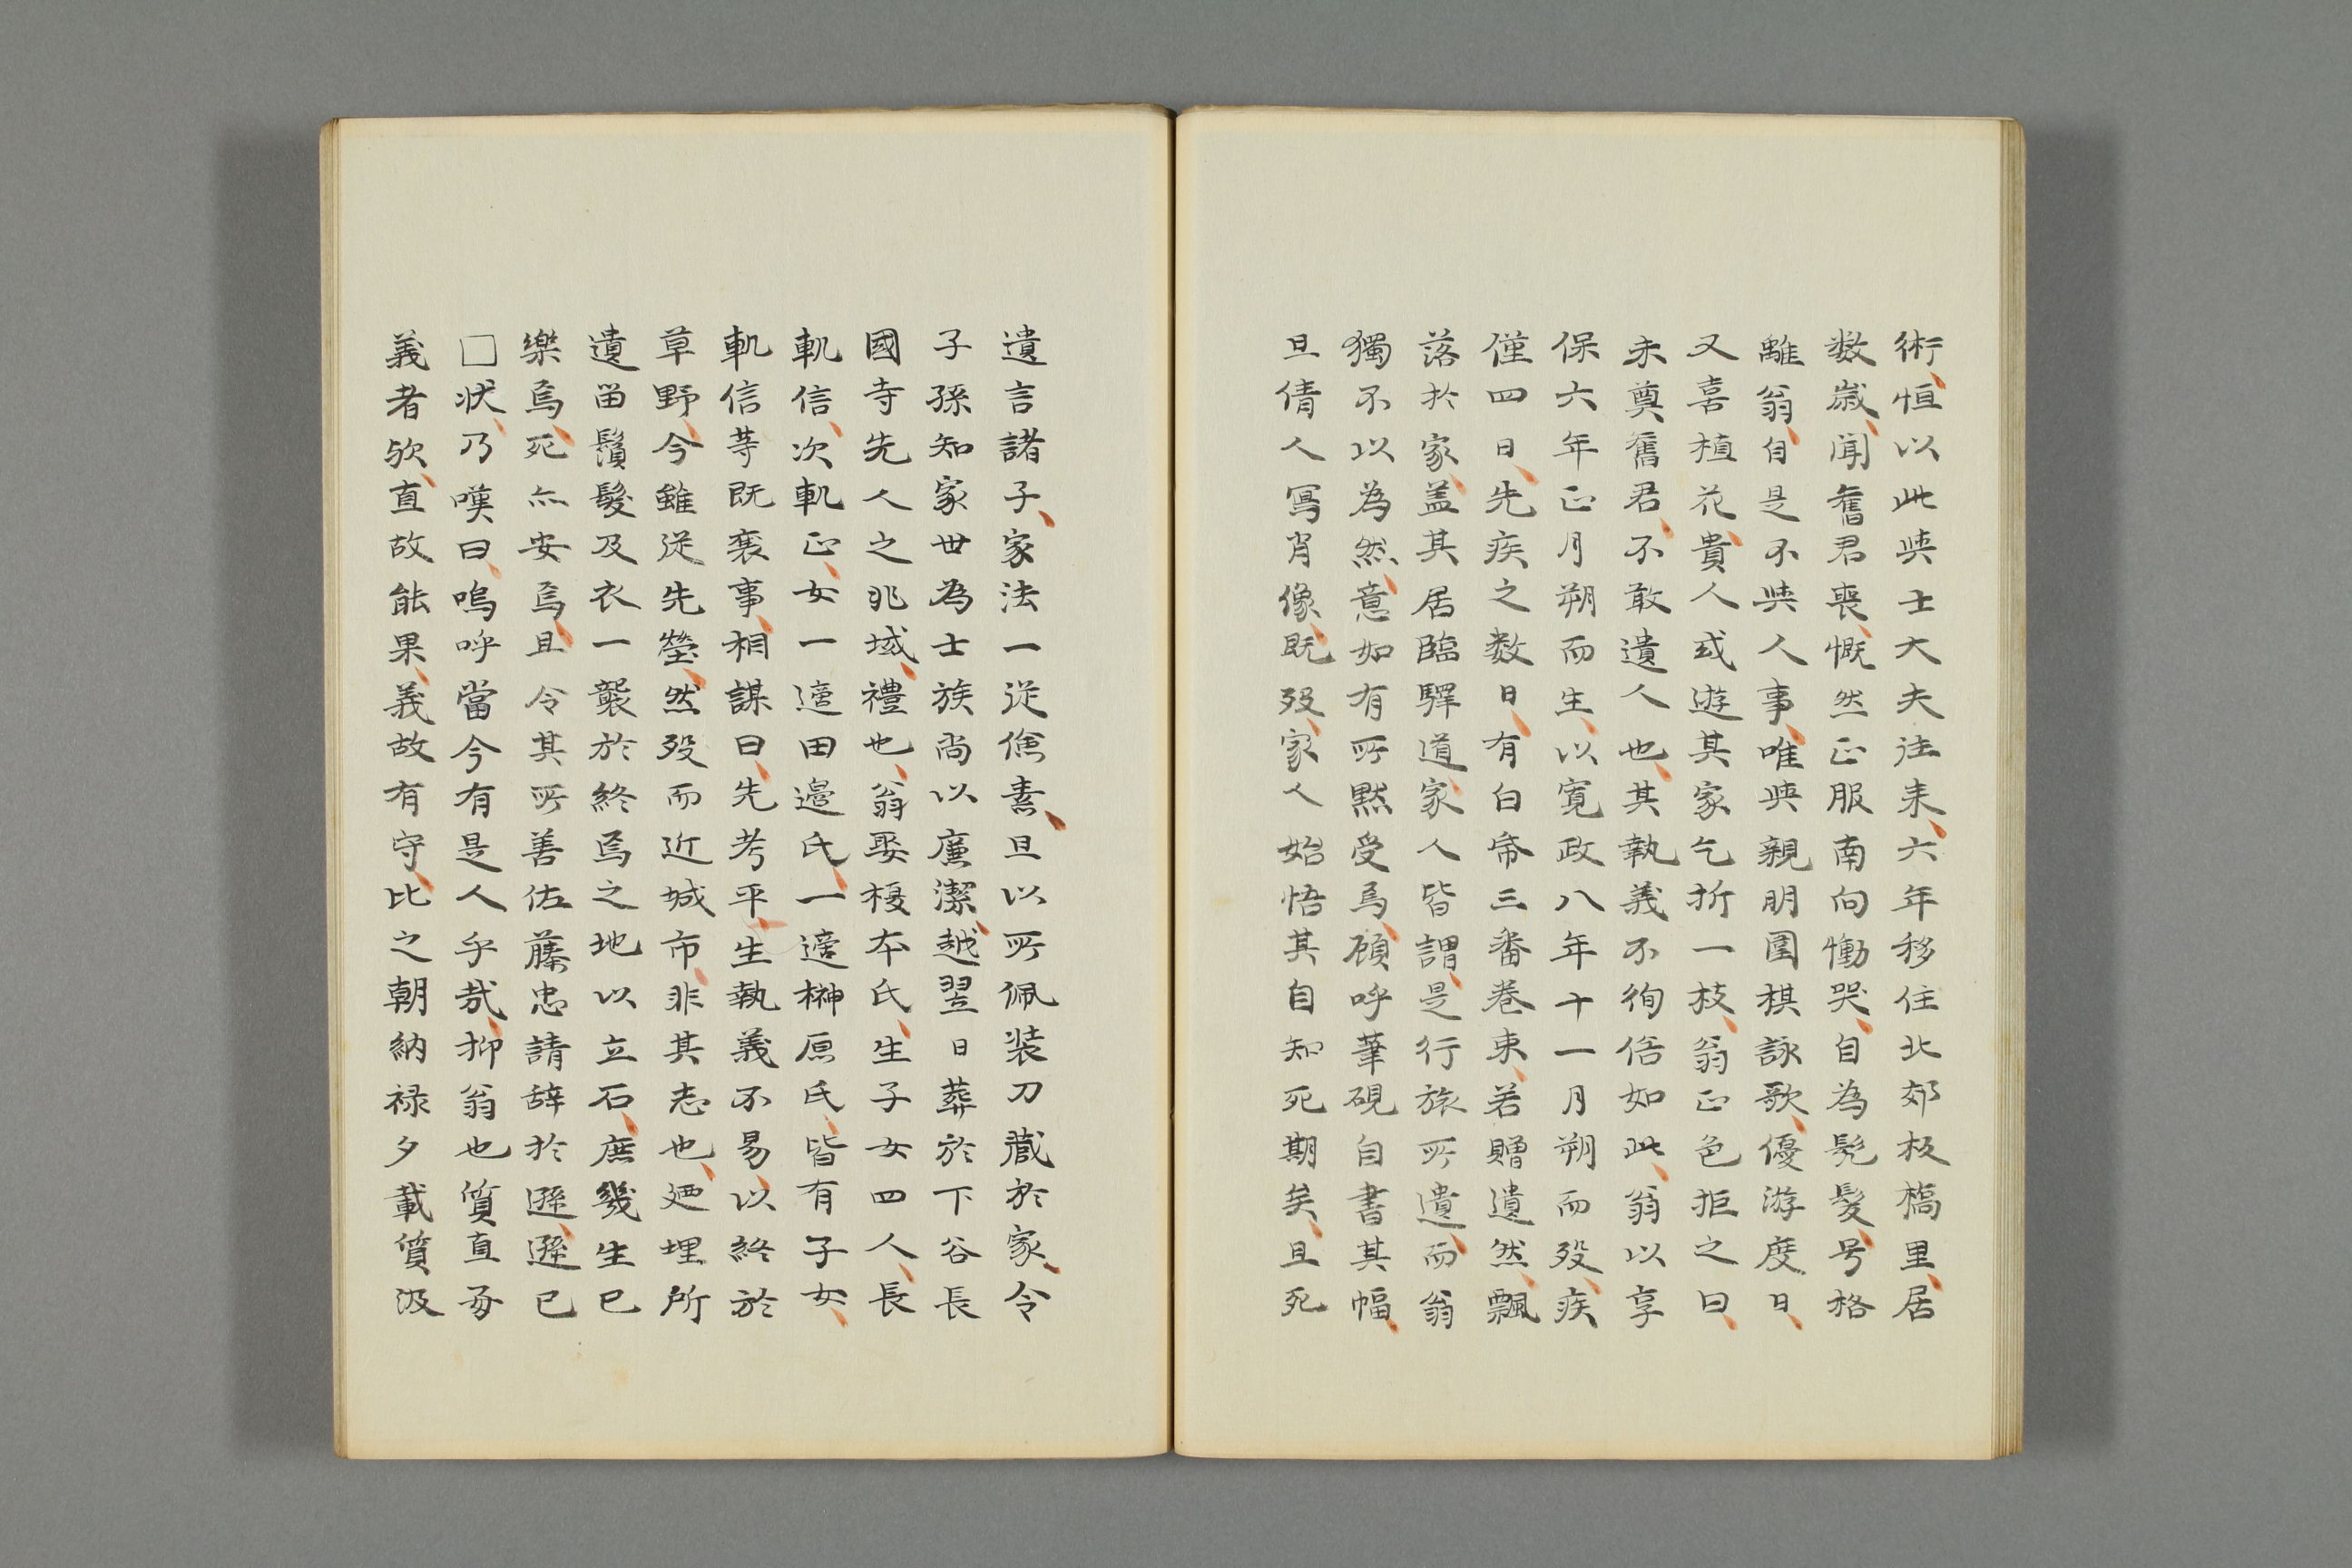 術恒以此與士大夫往来六年移住北郊板橋里居
数歳聞舊君喪慨然正服南向慟哭自為髠髮号格
離翁自是不與人事唯與親朋圍棋詠歌優游度日
又喜植花貴人或遊其家乞折一枝翁正色拒之曰
未奠舊君不敢遺人也其執義不徇俗如此翁以享
保六年正月朔而生以寛政八年十一月朔而歿疾
僅四日先疾之数日有白帋三番巻束若贈遺然飄
落於家盖其居臨驛道家人皆謂是行旅所遺而翁
獨不以為然意如有所黙受焉顧呼筆硯自書其幅
且倩人寫肖像既歿家人始悟其自知死期矣且死
遺言諸子家法一従儉素且以所佩装刀藏於家令
子孫知家世為士族尚以廉潔越翌日葬於下谷長
國寺先人之兆域禮也翁娶榎本氏生子女四人長
軌信次軌正女一適田邉氏一適榊原氏皆有子女
軌信等既襄事相謀曰先考平生執義不易以終於
草野今雖従先塋然歿而近城市非其志也廼埋所
遺畄鬚髮及衣一襲於終焉之地以立石庶幾生已
樂焉死亦安焉且令其所善佐藤忠請辞於遜遜已
□状乃嘆曰嗚呼當今有是人乎哉抑翁也質直有
義者欤直故能果義故有守比之朝納禄夕載質汲